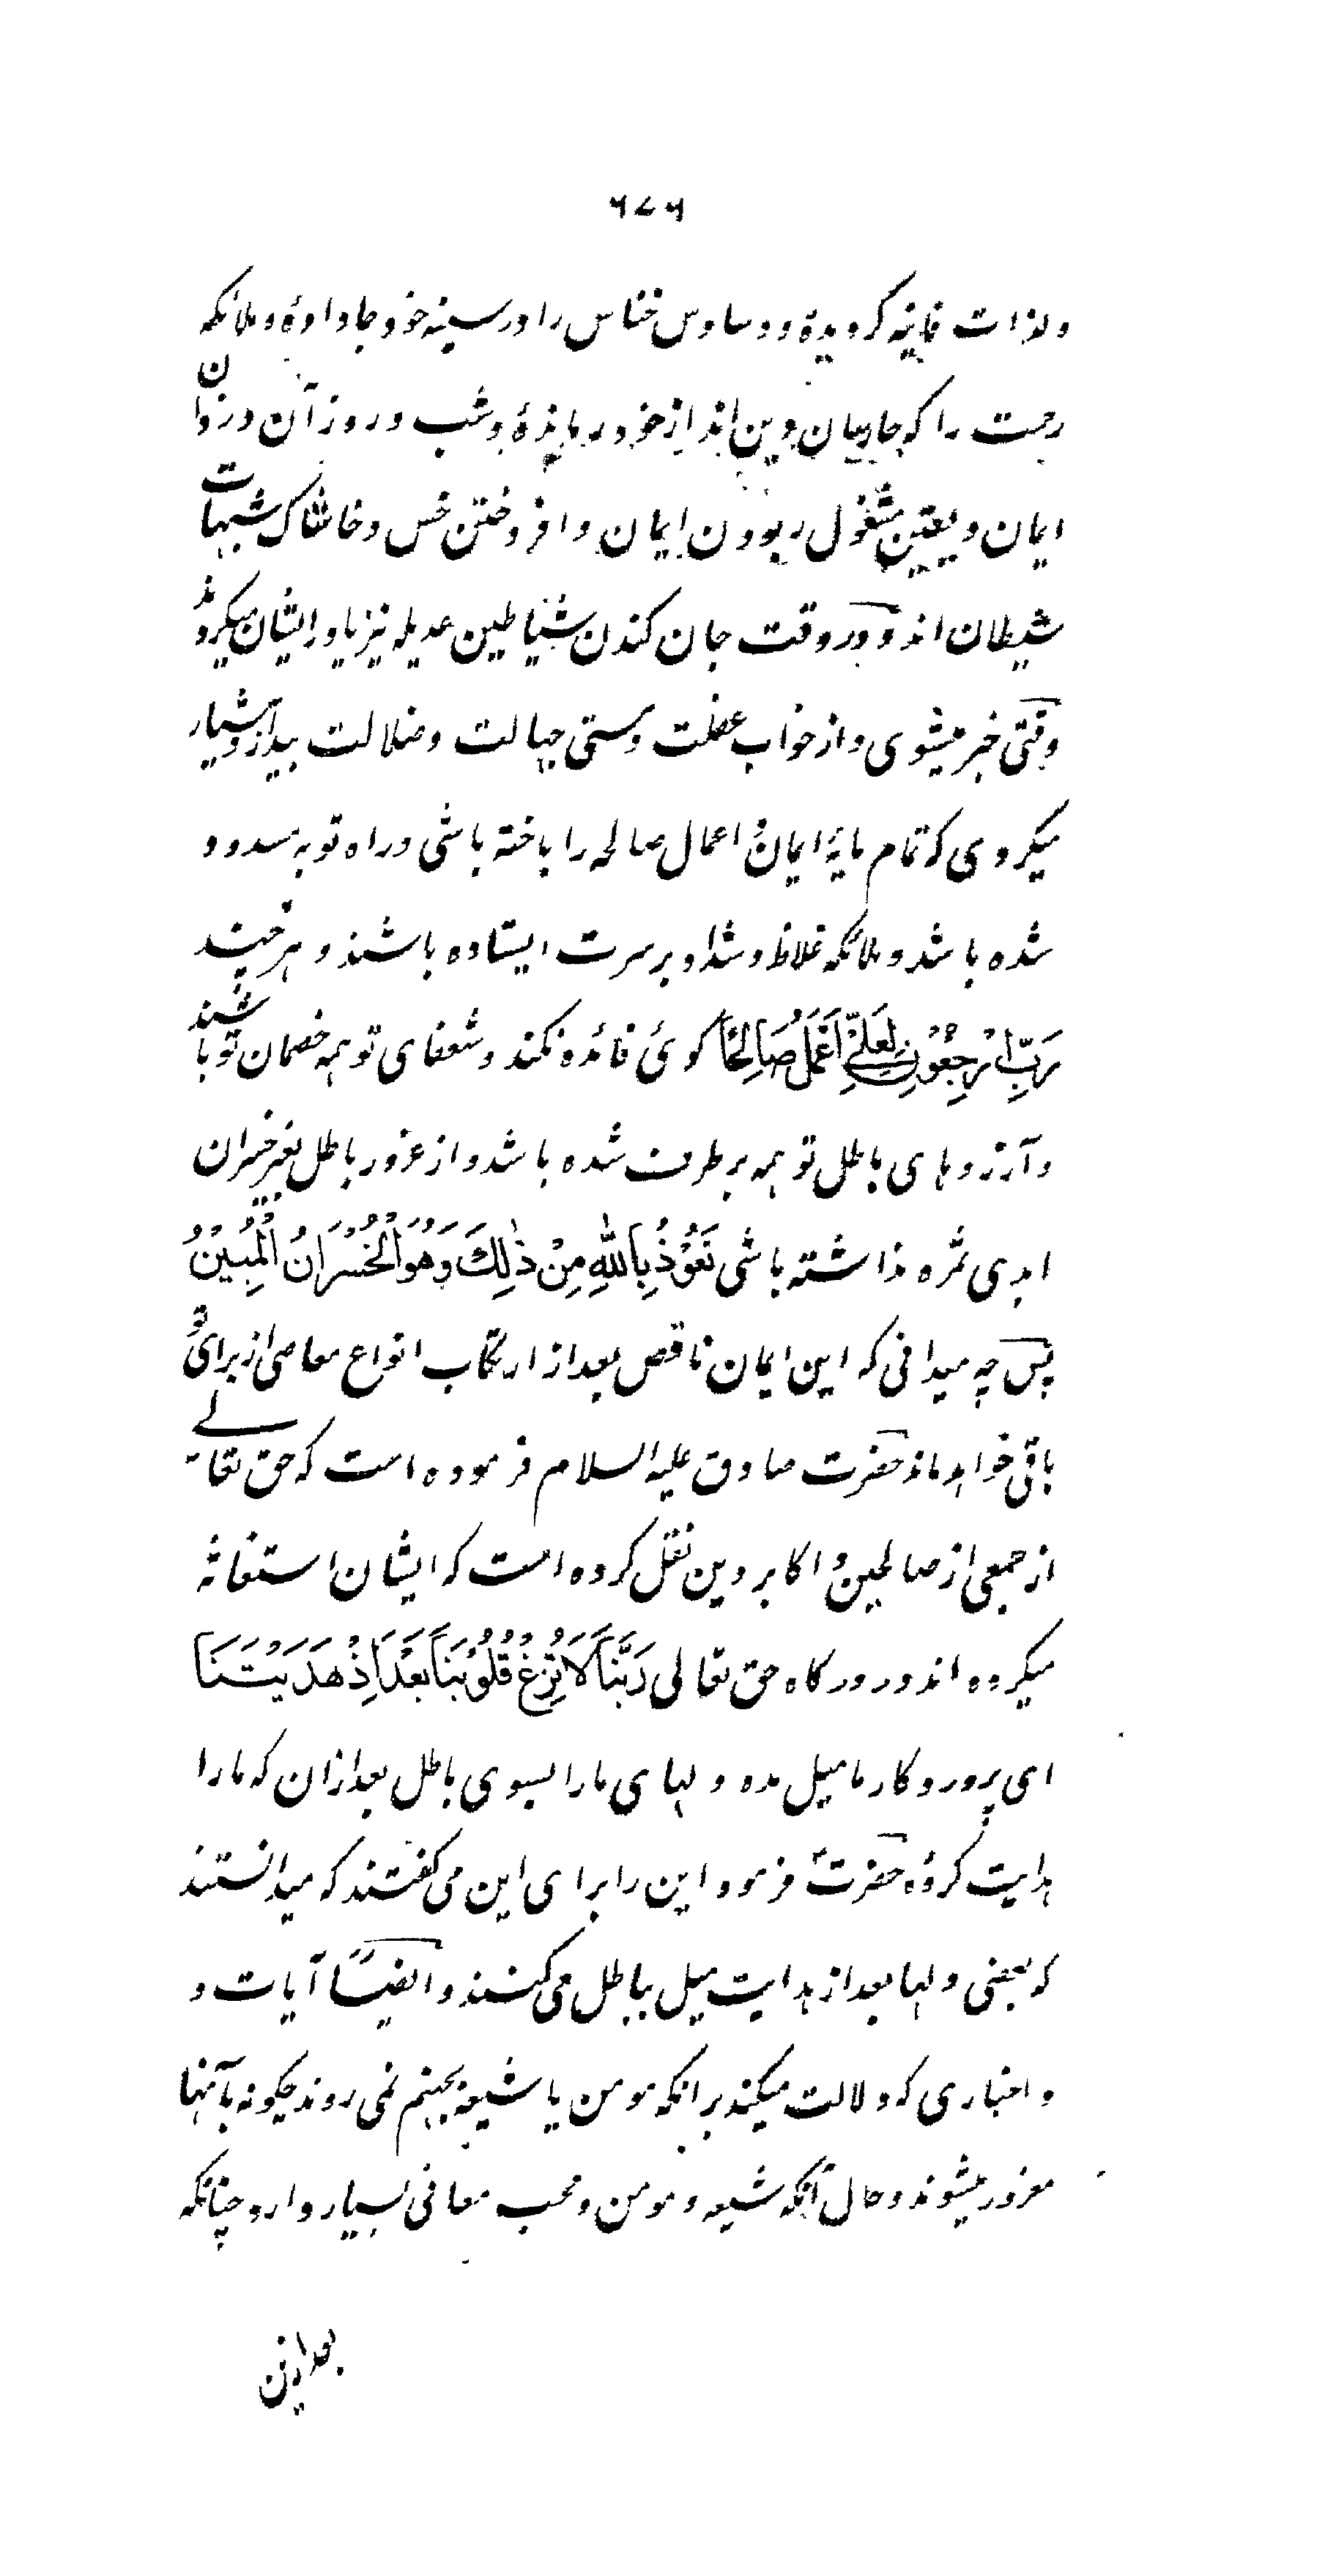 ۶۷۶
ولذات فانیه کردیدهٔ ووساوس خناس را در سینه خود جا دادهٔ وملائکه
رحمت را که حامیان دین اند از خود رمانیدهٔ وشب و روز آن دزدان
ایمان ویقین مشغول ربودن ایمان وافروختن خس وخاشاک شبهات
شیطان اند ودر وقت جان کندن شیاطین عدیله نیز یاور ایشان میکردند
وقتی خبر میشوی واز خواب غفلت ومستی جهالت وضلالت بیدار وهشیار
میکردی که تمام مایهٔ ایمان و اعمال صالحه را باخته باشی وراه توبه مسدود
شده باشد وملائکه غلاظ وشداد بر سرت ایستاده باشند و هر چند
رَبِّ ارْجِعُوْنِ لَعَلِّیْ اَعْمَلُ صَالِحًا کوئی فائده نکند وشفعای تو همه خصمان تو باشند
وآرزوهای باطل تو همه بر طرف شده باشد واز غرور باطل بغیر خسران
ابدی ثمره نداشته باشی نَعُوْذُ بِاللهِ مِنْ ذٰلِكَ وَهُوَ الْخُسْرَانُ الْمُبِیْنُ
پس چه میدانی که این ایمان ناقص بعد از ارتکاب انواع معاصی از برای تو
باقی خواهد ماند حضرت صادق علیه السلام فرموده است که حق تعالے
از جمعی از صالحین و اکابر دین نقل کرده است که ایشان استغاثه
میکرده اند در درکاه حق تعالی رَبَّنَا لَا تُزِغْ قُلُوْبَنَا بَعْدَ اِذْ هَدَیْتَنَا
ای پروردکار ما میل مده دلهای ما را بسوی باطل بعد ازان که ما را
هدایت کردهٔ حضرتؑ فرمود این را برای این می کفتند که میدانستند
که بعضی دلها بعد از هدایت میل بباطل می کنند وایضًا آیات و
واخباری که دلالت میکند بر انکه مومن یا شیعه بجهنم نمی روند چکونه بآنها
مغرور میشوند وحال آنکه شیعه و مومن ومحب معانی بسیار دارد چنانکه
بعد ازین